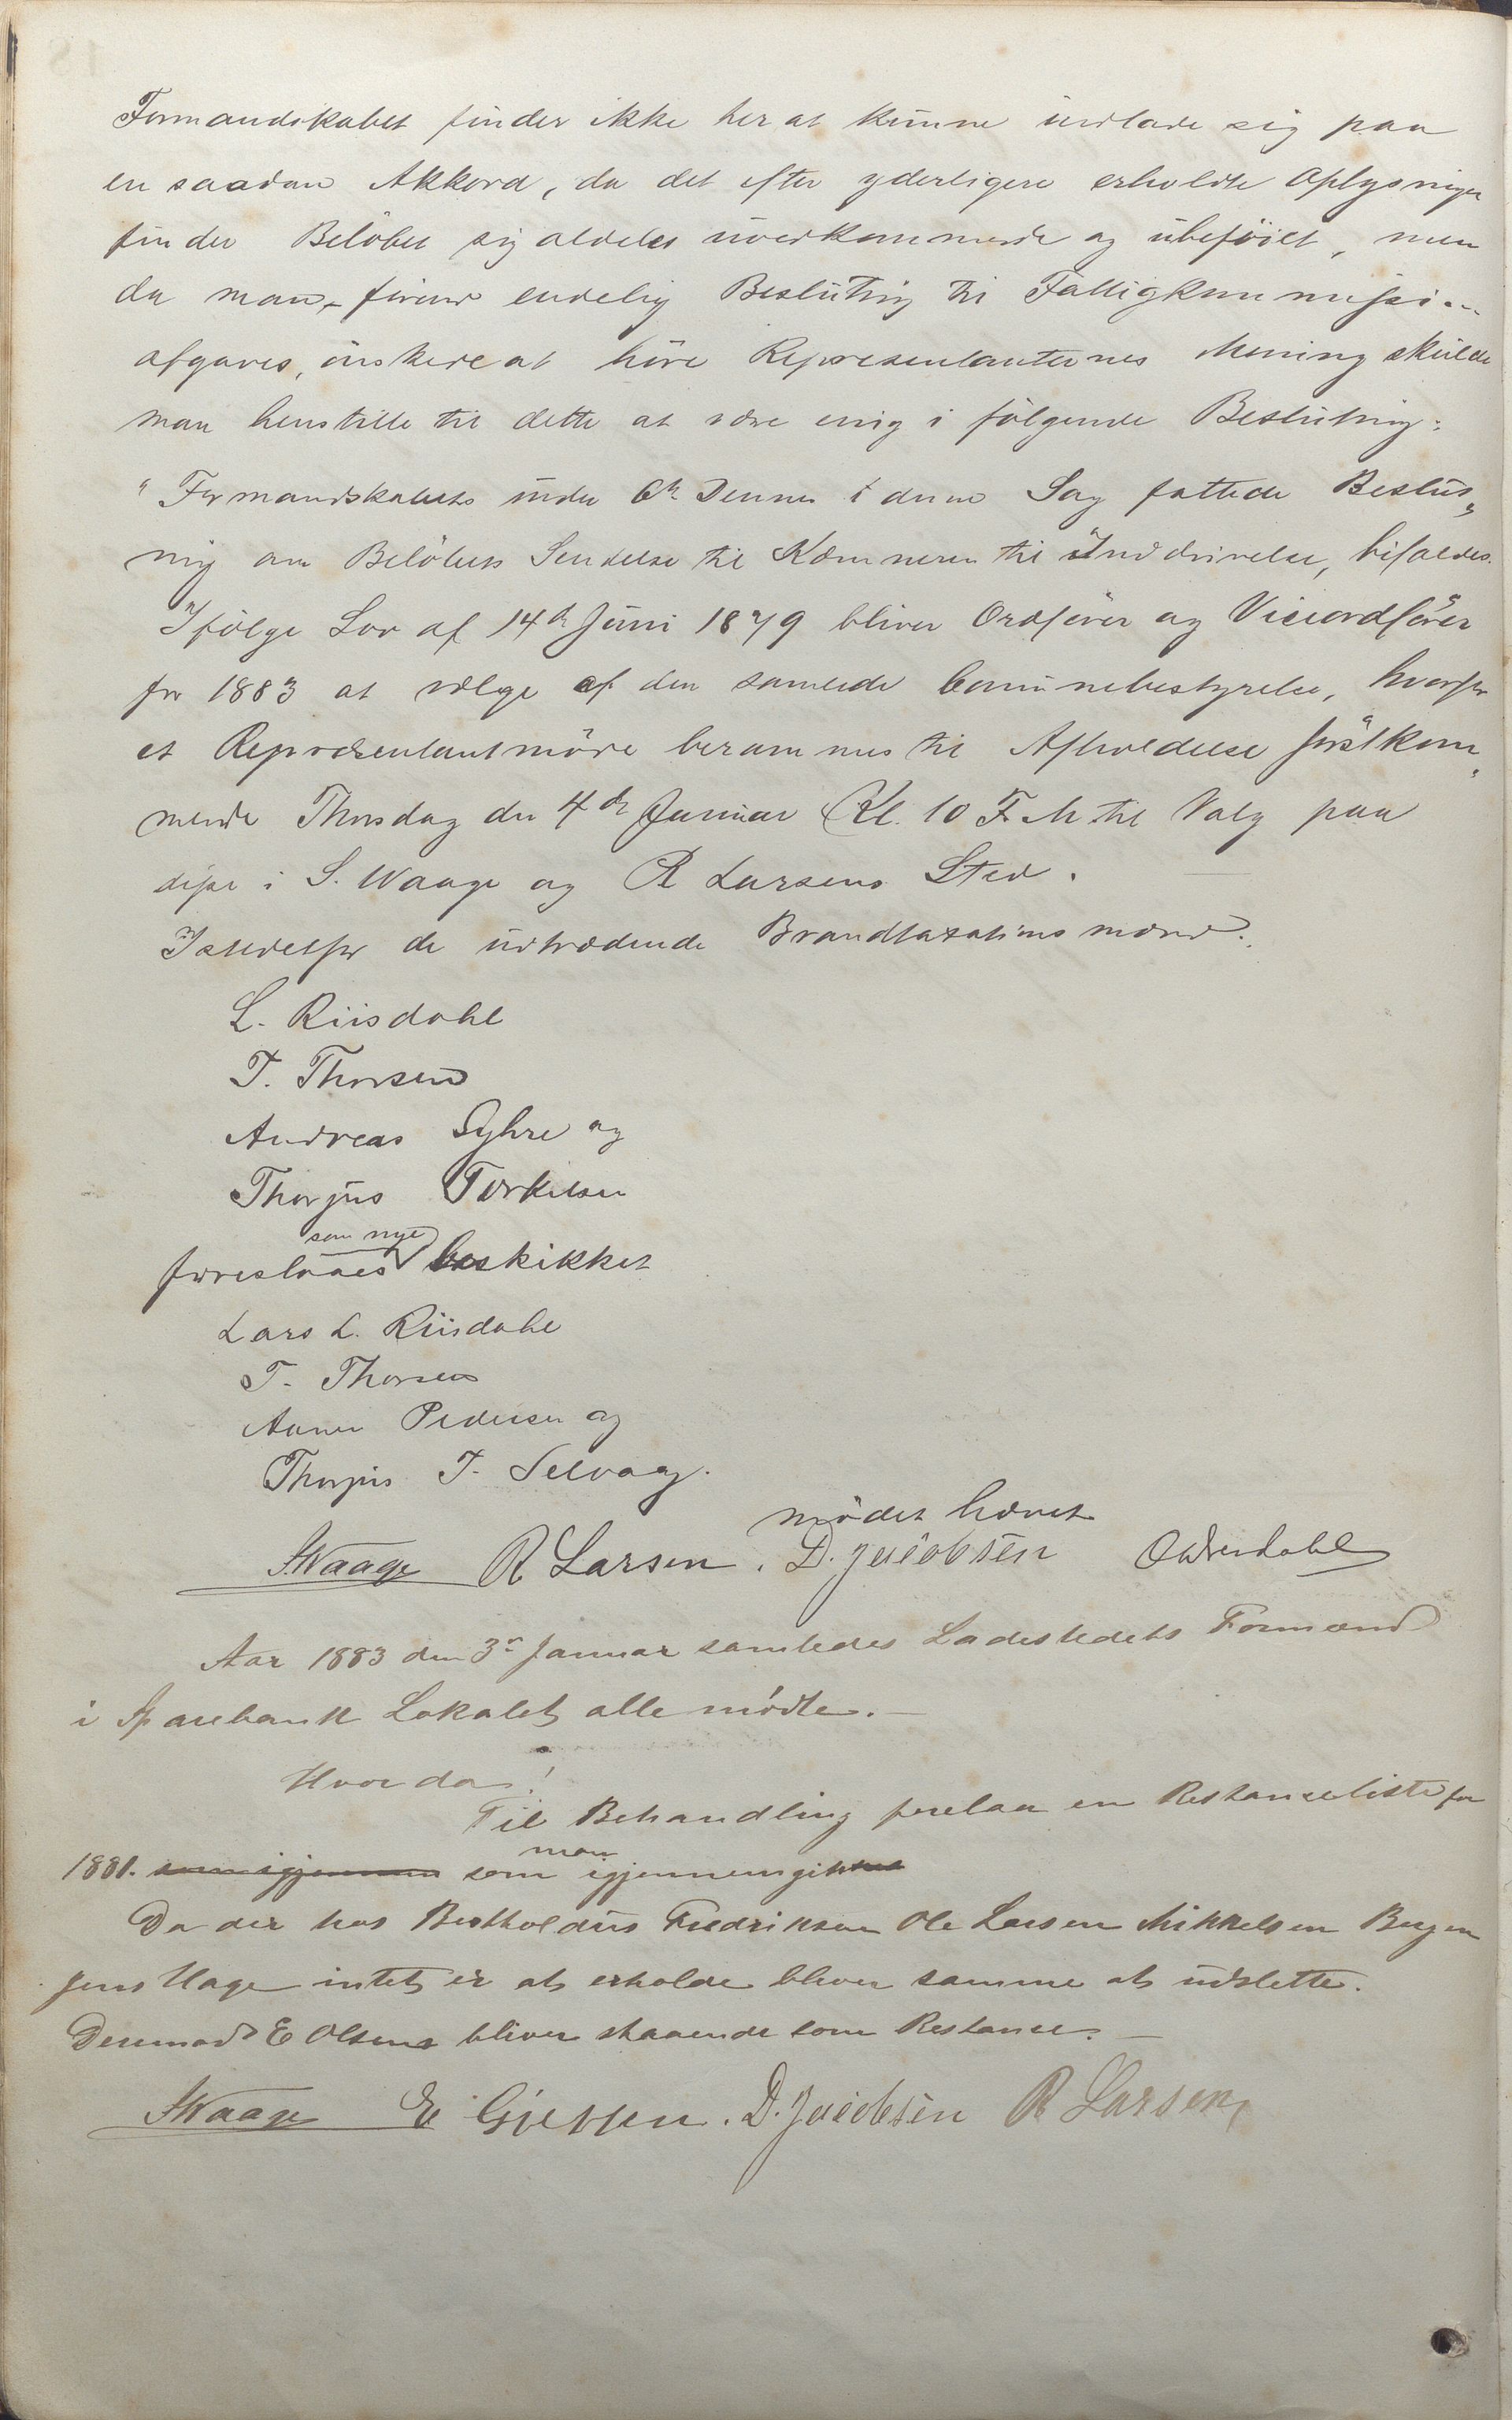 Formandskabet finder ikke her at kunne indlade sig paa
en saadan Akkord, da det efter yderligere erholdte Oplysninger
finder Beløbet sig aldeles uvedkommende og ubeføiet, men
da man, førend endelig Beslutning til Fattigkommissi-
afgaves, ønskede at høre Repræsentanternes Mening skulde
man henstille til dette at være enig i følgende Beslutning:
"Formandskabets under 6te Dennes i denne Sag fattede Beslut„
ning om Beløbets Sendelse til Kæmneren til Inddrivelse, bifaldes.
Ifølge Lov af 14de Juni 1879 bliver Ordfører og Viceordfører
for 1883 at vælge af den samlede Communebestyrelse, hvorfor
et Repræsentantmøde berammes til Afholdelse førstkom„
mende Thorsdag den 4de Januar Kl. 10 F. M. til Valg paa
disse i S. Waage og R Larsens Sted.
Istedetfor de udtrædende Brandtaxationsmænd:
L. Riisdahl
T. Thorsen
Andreas Syhre og
Thorjus Torkelsen
som nye
foreslaaes beskikket
Lars L. Riisdahl
T. Thorsen
Aanen Pedersen og
Thorjus T. Selvaag.
mødet hævet
SWaage R Larsen. D. Jacobsen
Aar 1883 den 3die Januar samledes Ladestedets Formænd
i Sparebank Lokalet alle mødte.
Hvor da!
Til Behandling forelaa en Restanceliste for
1881. som igjennem som man igjennemgik
Da der hos Bertholdus Fredriksen Ole Larsen Mikkelsen Bergen
Jens Hage intet er at erholde bliver samme at udslette.
Derimod E Olsens bliver staaende som Restance.
SWaage E Gjersen. D. Jacobsen R Larsen